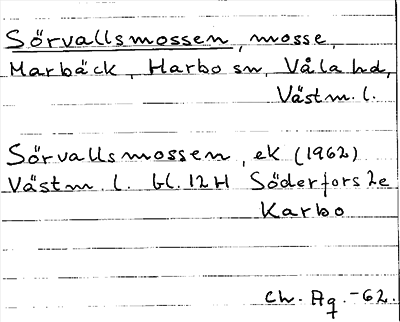 Sörvallsmossen, mosse,
Marbäck, Harbo sn, Våla hd,
Västm. l.
Sörvallsmossen, ek (1962)
Västm. l. bl. 12H Söderfors 2e
Karbo
Ch. Ag. -62.